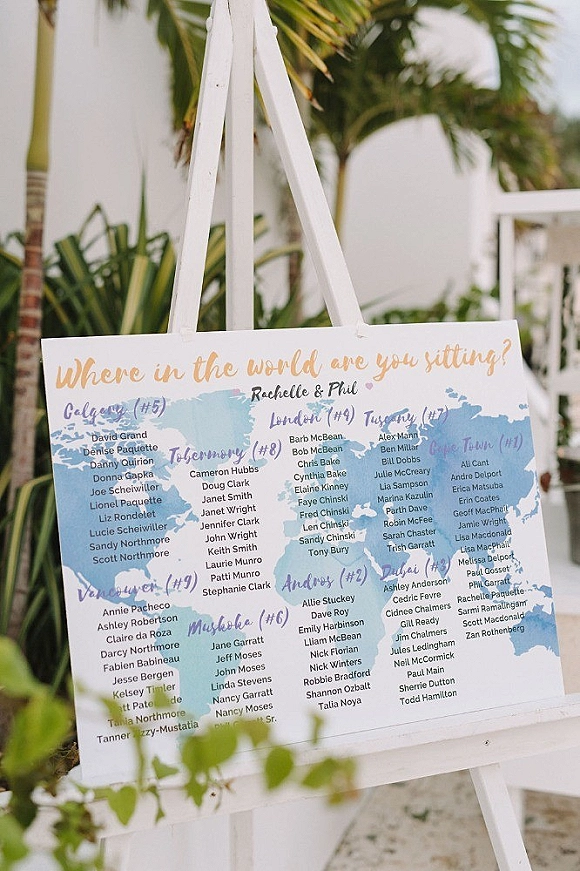 Where in the world are you sitting?
Rachelle & Phil
Calgary (#5)
David Grand
Denise Paquette
Danny Quirion
Donna Gapka
Joe Scheiwiller
Lionel Paquette
Liz Rondelet
Lucie Scheiwiller
Sandy Northmore
Scott Northmore
Vancouver (#9)
Annie Pacheco
Ashley Robertson
Claire da Roza
Darcy Northmore
Fabien Babineau
Jesse Bergen
Kelsey Timler
Tania Northmore
Tanner Azzy-Mustatia
Tobermory (#8)
Cameron Hubbs
Doug Clark
Janet Smith
Janet Wright
Jennifer Clark
John Wright
Keith Smith
Laurie Munro
Patti Munro
Stephanie Clark
Muskoka (#6)
Jane Garratt
Jeff Moses
John Moses
Linda Stevens
Nancy Garratt
Nancy Moses
Sr.
London (#4)
Barb McBean
Bob McBean
Chris Bake
Cynthia Bake
Elaine Kinney
Faye Chinski
Fred Chinski
Len Chinski
Sandy Chinski
Tony Bury
Andros (#2)
Allie Stuckey
Dave Roy
Emily Harbinson
Lliam McBean
Nick Florian
Nick Winters
Robbie Bradford
Shannon Ozbalt
Talia Noya
Tuscany (#7)
Alex Mann
Ben Millar
Bill Dobbs
Julie McCreary
Lia Sampson
Marina Kazulin
Parth Dave
Robin McFee
Sarah Chaster
Trish Garratt
Dubai (#3)
Ashley Anderson
Cedric Fevre
Cidnee Chalmers
Gill Ready
Jim Chalmers
Jules Ledingham
Neil McCormick
Paul Main
Sherrie Dutton
Todd Hamilton
Cape Town (#1)
Ali Cant
Andre Delport
Erica Matsuba
Erin Coates
Geoff MacPhail
Jamie Wright
Lisa Macdonald
Lisa MacPhail
Melissa Delport
Paul Gosset
Phil Garratt
Rachelle Paquette
Sarmi Ramalingam
Scott Macdonald
Zan Rothenberg